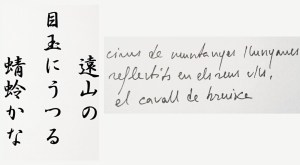 遠山の
目玉にうつる
蜻蛉かな
cims de muntanyes llunyanes
reflectits en els seus ulls,
el cavall de bruixa